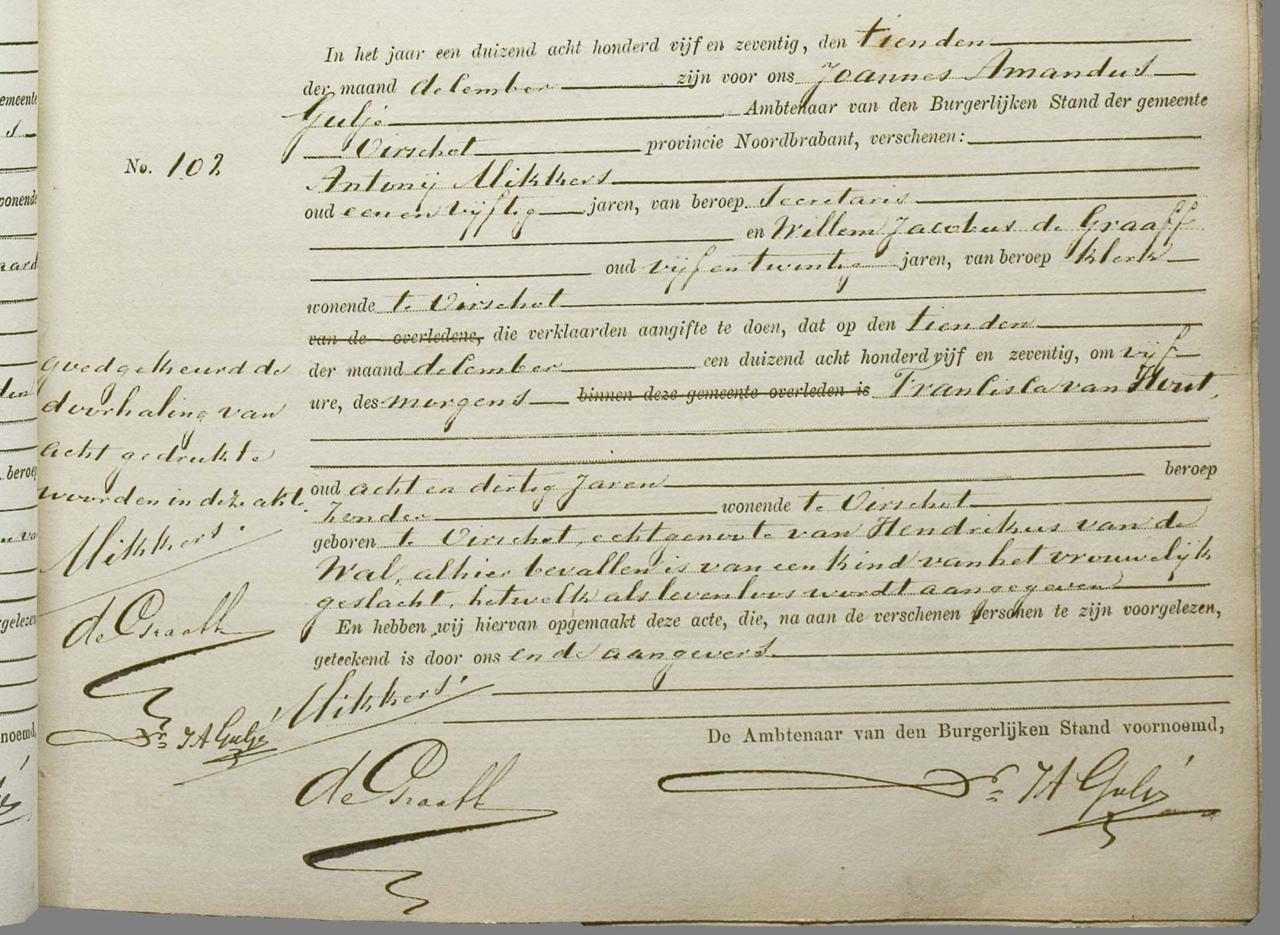 In het jaar een duizend acht honderd vijf en zeventig, den tienden
der maand december zijn voor ons Joannes Amandus
Guljé Ambtenaar van den Burgerlijken Stand der gemeente
Oirschot provincie Noordbrabant, verschenen:
No. 102
Antonij Mikkers
oud een en vijftig jaren, van beroep Secretaris
en Willem Jacobus de Graaff
oud vijf en twintig jaren, van beroep klerk
wonende te Oirschot
van de overledene, die verklaarden aangifte te doen, dat op den tienden
der maand december een duizend acht honderd vijf en zeventig, om vijf
ure, des morgens binnen deze gemeente overleden is Francisca van Hout,
oud acht en dertig Jaren beroep
zonder wonende te Oirschot
geboren te Oirschot, echtgenoote van Hendrikus van de
Wal, alhier bevallen is van een kind van het vrouwelijk
geslacht, hetwelk als levenloos wordt aangegeven
En hebben wij hiervan opgemaakt deze acte, die, na aan de verschenen personen te zijn voorgelezen,
geteekend is door ons en de aangevers
Mikkers
de Graaff
De Ambtenaar van den Burgerlijken Stand voornoemd,
JA Guljé
goedgekeurd de
doorhaling van
acht gedrukte
woorden in deze akt.
Mikkers
de Graaff
JA Guljé
emeente
wonende
aard
den
beroep
gelezen
noemd,